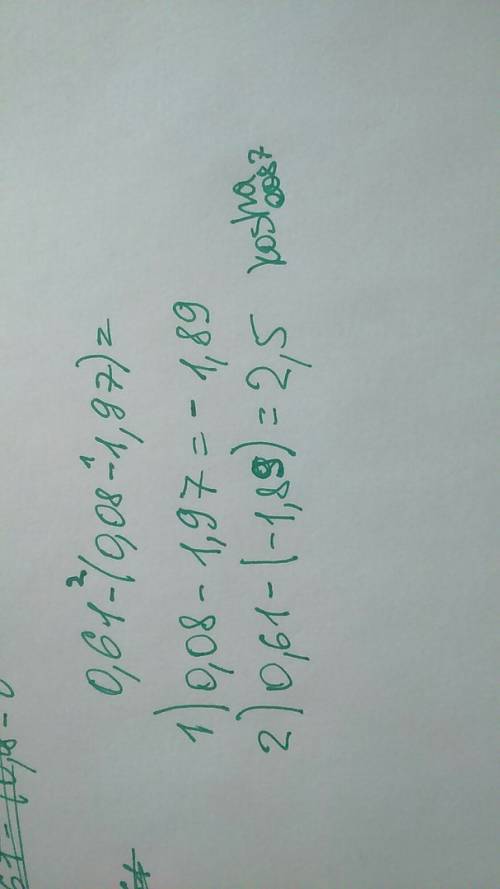 0,61-(0,08-1,97)=
2 1
1) 0,08-1,97=-1,89
2) 0,61-(-1,89)=2,5
0087